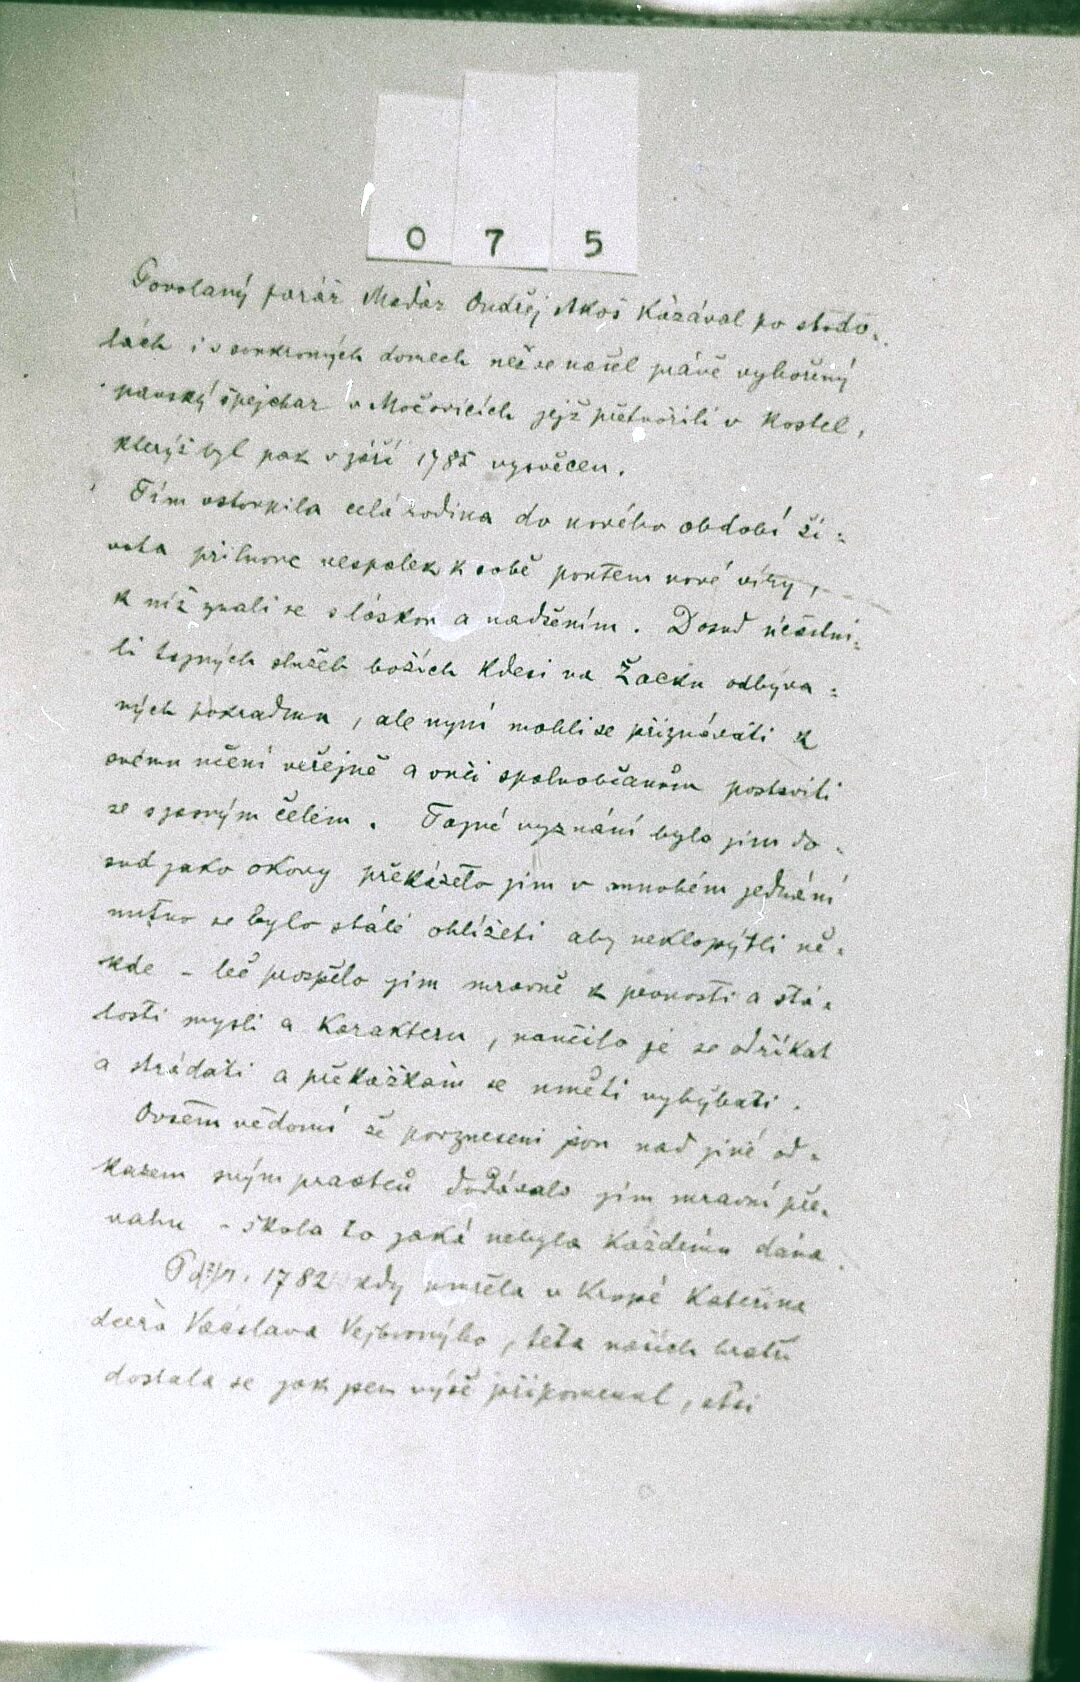 0 7 5
Povolaný farář Maďar Ondřej Akoš kázával po stodo-
lách i v soukromých domech než se našel právě vybořený
panský špejchar v Močovicích jejž přetvořili v kostel,
kterýž byl pak v září 1785 vysvěcen.
Tím vstoupila celá rodina do nového období ži-
vota přilnuvc vespolek k sobě poutem nové víry,
k níž znali se s láskou a nadšením. Dosud účastni-
li tajných služeb božích kdesi na Žacku odbýva-
ných pokradmu, ale nyní mohli se přiznávati k
svému učení veřejně a vůči spoluobčanům postaviti
se s jasným čelem. Tajné vyznání bylo jim do-
sud jako okovy překáželo jim v mnohém jednání
nutno se bylo stále ohlížeti aby neklopýtli ně-
kde - leč prospělo jim mravně k pevnosti a stá-
losti mysli a karakteru, naučilo je se odříkat
a strádati a překážkám se uměti vyhýbati.
Ovšem vědomí že povzneseni jsou nad jiné od-
kazem svým praotců dodávalo jim mravní pře-
vahu - škola to jaká nebyla každému dána.
r. 1782 kdy umřela v Kropé Kateřina
dcera Václava Vejborného, teta našich bratří
dostala se jak jsem výše připomenul,